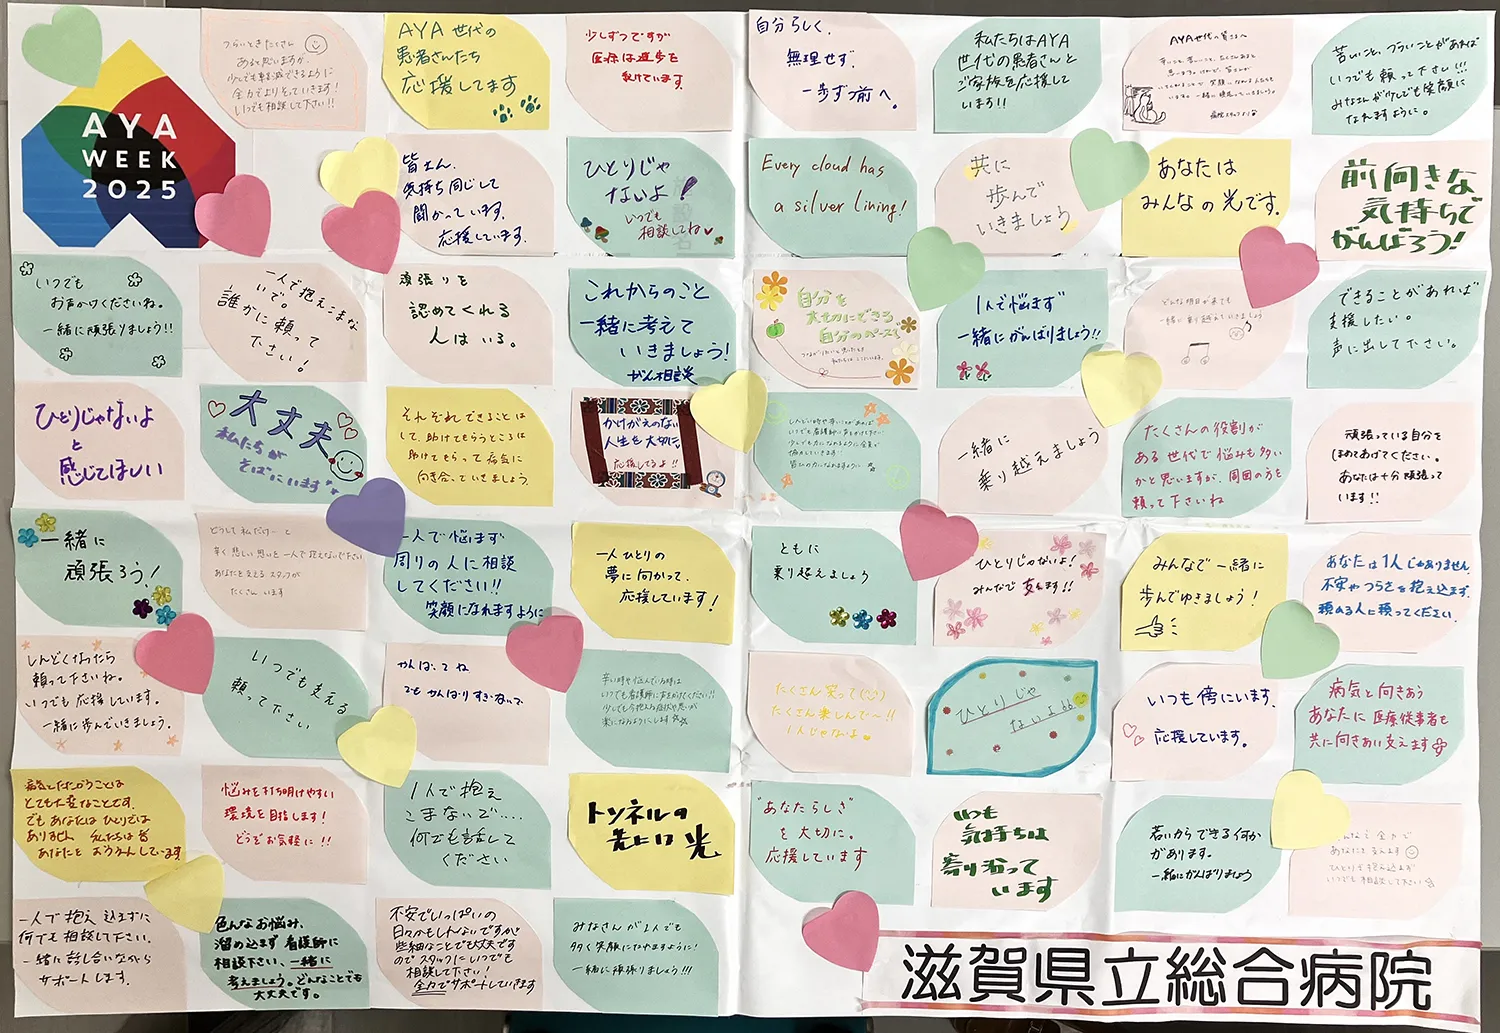 AYA
WEEK
2025
つらいときたくさん
あると思いますが、
少しでも軽減できるように
全力でよりそっていきます!
いつでも相談して下さい!!
AYA世代の
患者さんたち
応援してます
少しずつですが
医療は進歩を
続けています。
自分らしく、
無理せず、
一歩ず前へ。
私たちはAYA
世代の患者さんと
ご家族を応援して
います!!
AYA世代の皆さまへ
苦しいこと、つらいことがあれば
いつでも頼って下さい!!!
みなさんが少しでも笑顔に
なれますように。
皆さん、
気持ち同じして
闘かっています。
応援しています。
ひとりじゃ
ないよ!
いつでも
相談してね
Every cloud has
a silver lining!
共に
歩んで
いきましょう
あなたは
みんなの光です。
前向きな
気持ちで
がんばろう!
いつでも
お声かけくださいね。
一緒に頑張りましょう!!
一人で抱えこまな
いで。
誰かに頼って
下さい!
頑張りを
認めてくれる
人はいる。
これからのこと
一緒に考えて
いきましょう!
がん相談
自分を
大切にできる
自分のペースで
1人で悩まず
一緒にがんばりましょう!!
どんな明日が来ても
一緒に乗り越えていきましょう
できることがあれば
支援したい。
声に出して下さい。
ひとりじゃないよ
と
感じてほしい
大丈夫
私たちが
そばにいます
それぞれできることは
して、助けてもらうところは
助けてもらって病気に
向き合っていきましょう
かけがえのない
人生を大切に
応援してるよ!!
一緒に
乗り越えましょう
たくさんの役割が
ある世代で悩みも多い
かと思いますが、周囲の方を
頼って下さいね
頑張っている自分を
ほめてあげてください。
あなたは十分頑張って
います!!
一緒に
頑張ろう!
どうして私だけ…と
辛く悲しい思いを一人で抱えないで下さい
あなたを支えるスタッフが
たくさんいます
一人で悩まず
周りの人に相談
してください!!
笑顔になれますように
一人ひとりの
夢に向かって、
応援しています!
ともに
乗り越えましょう
ひとりじゃないよ!
みんなで支えます!!
みんなで一緒に
歩んでゆきましょう!
あなたは1人じゃありません。
不安やつらさを抱え込まず、
頼める人に頼ってください。
しんどくなったら
頼って下さいね。
いつでも応援しています。
一緒に歩んでいきましょう。
いつでも支える
頼って下さい
がんばってね
でもがんばりすぎないで
たくさん笑って
たくさん楽しんで〜!!
1人じゃないよ
ひとりじゃ
ないよ
いつも傍にいます。
応援しています。
病気と向きあう
あなたに医療従事者も
共に向きあい支えます
病気とたたかうことは
とても大変なことです。
でもあなたはひとりでは
ありません 私たちは皆
あなたをおうえんしています
悩みを打ち明けやすい
環境を目指します!
どうぞお気軽に!!
1人で抱え
こまないで....
何でも話して
ください
トンネルの
先には光
"あなたらしさ"
を大切に。
応援しています
いつも
気持ちは
寄り沿って
います
若いからできる何か
があります。
一緒にがんばりましょう
あなたを支えます
一人で抱え込まずに
何でも相談して下さい。
一緒に話し合いながら
サポートします。
色んなお悩み、
溜め込まず看護師に
相談下さい、一緒に
考えましょう。どんなことでも
大丈夫です。
不安でいっぱいの
日々かもしれないですが
些細なことでも大丈夫です
のでスタッフにいつでも
相談して下さい!
全力でサポートしていきます
みなさんが1人でも
多く笑顔になれますように!
一緒に頑張りましょう!!!
滋賀県立総合病院